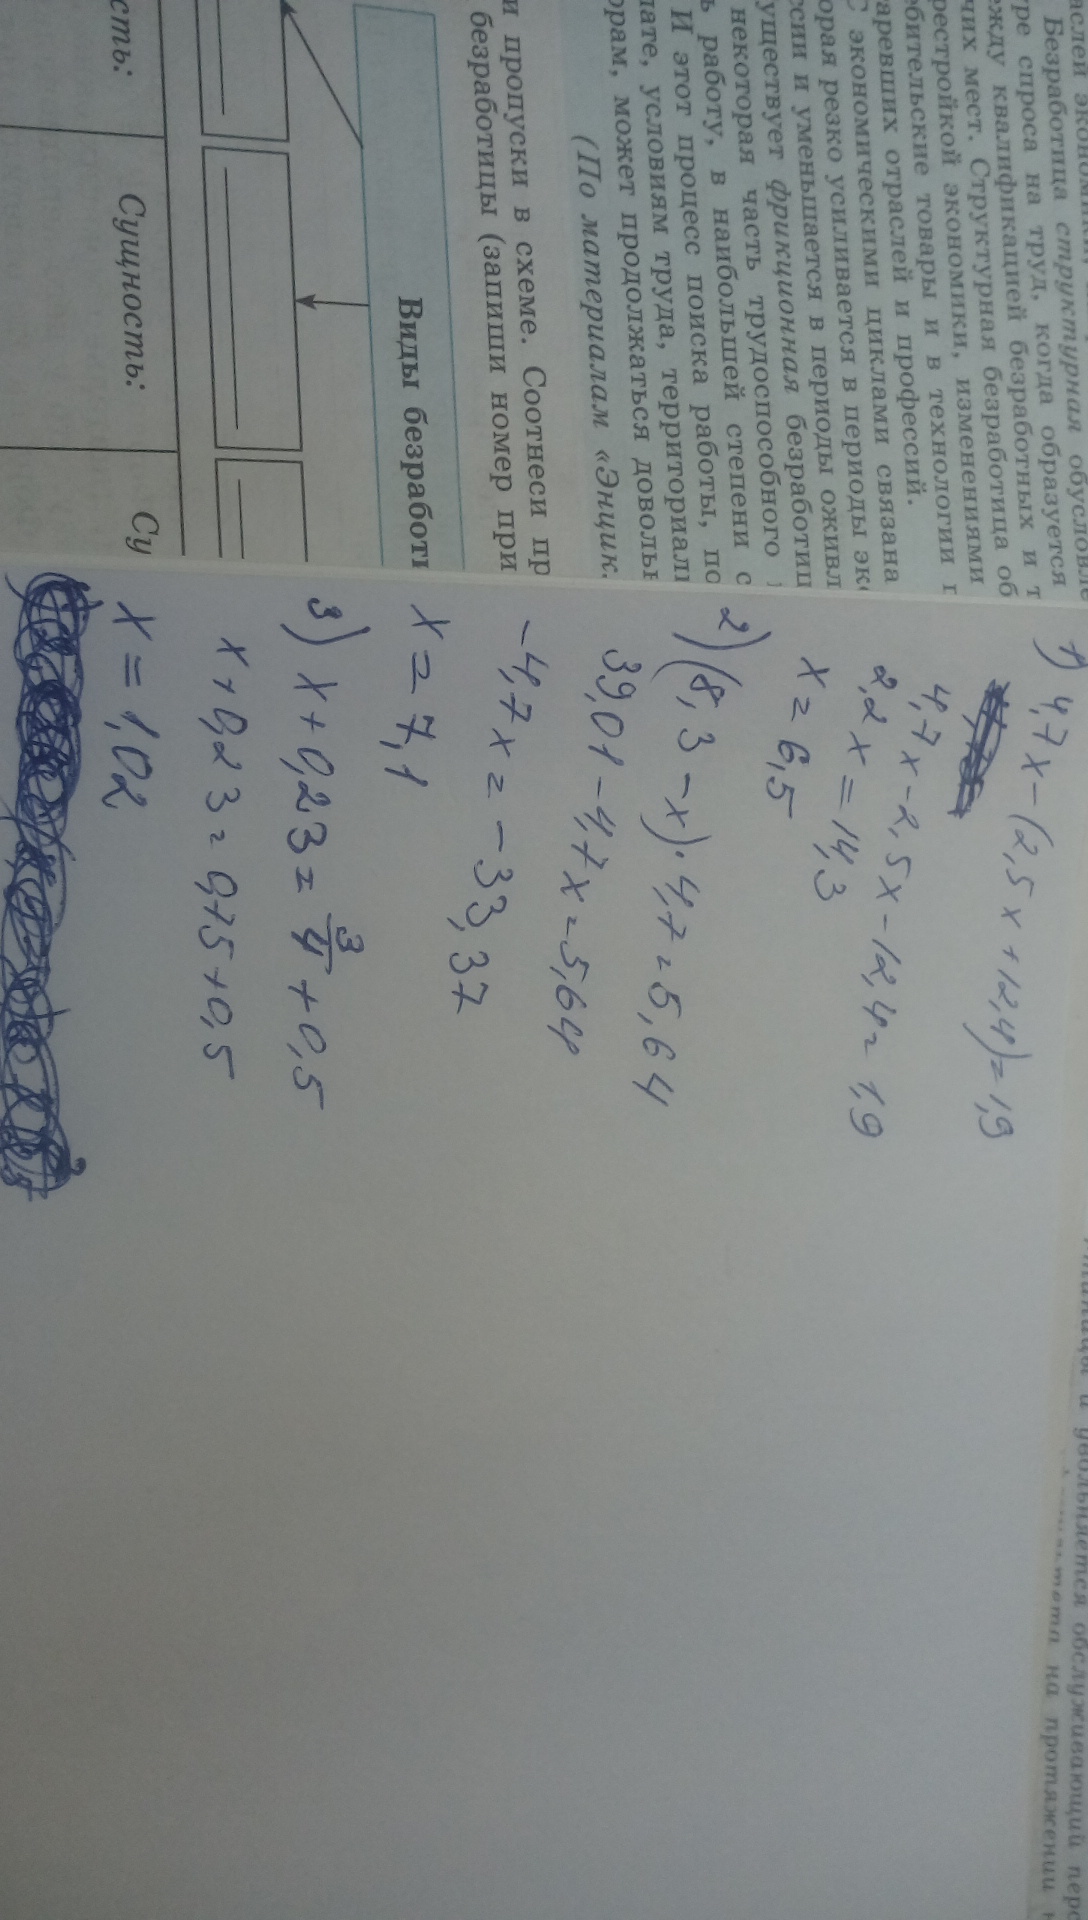 Безработица структурная обусловле
ре спроса на труд, когда образуется
ежду квалификацией безработных и т
чих мест. Структурная безработица об
рестройкой экономики, изменениями
ебительские товары и в технологии п
аревших отраслей и профессий.
С экономическими циклами связана
орая резко усиливается в периоды эк
ссии и уменьшается в периоды оживл
уществует фрикционная безработиц
некоторая часть трудоспособного
ь работу, в наибольшей степени с
И этот процесс поиска работы, по
лате, условиям труда, территориал
орам, может продолжаться доволь
(По материалам «Энцик.
и пропуски в схеме. Соотнеси пр
безработицы (запиши номер при
Виды безработи
сть:
Сущность:
Су
1) 4,7x-(2,5x+12,4)=1,9
4,7x-2,5x-12,4=1,9
2,2x=14,3
x=6,5
2) (8,3-x)·4,7=5,64
39,01-4,7x=5,64
-4,7x=-33,37
x=7,1
3) x+0,23=3/4+0,5
x+0,23=0,75+0,5
x=1,02
и увольняется обслуживающий перс
на протяжении